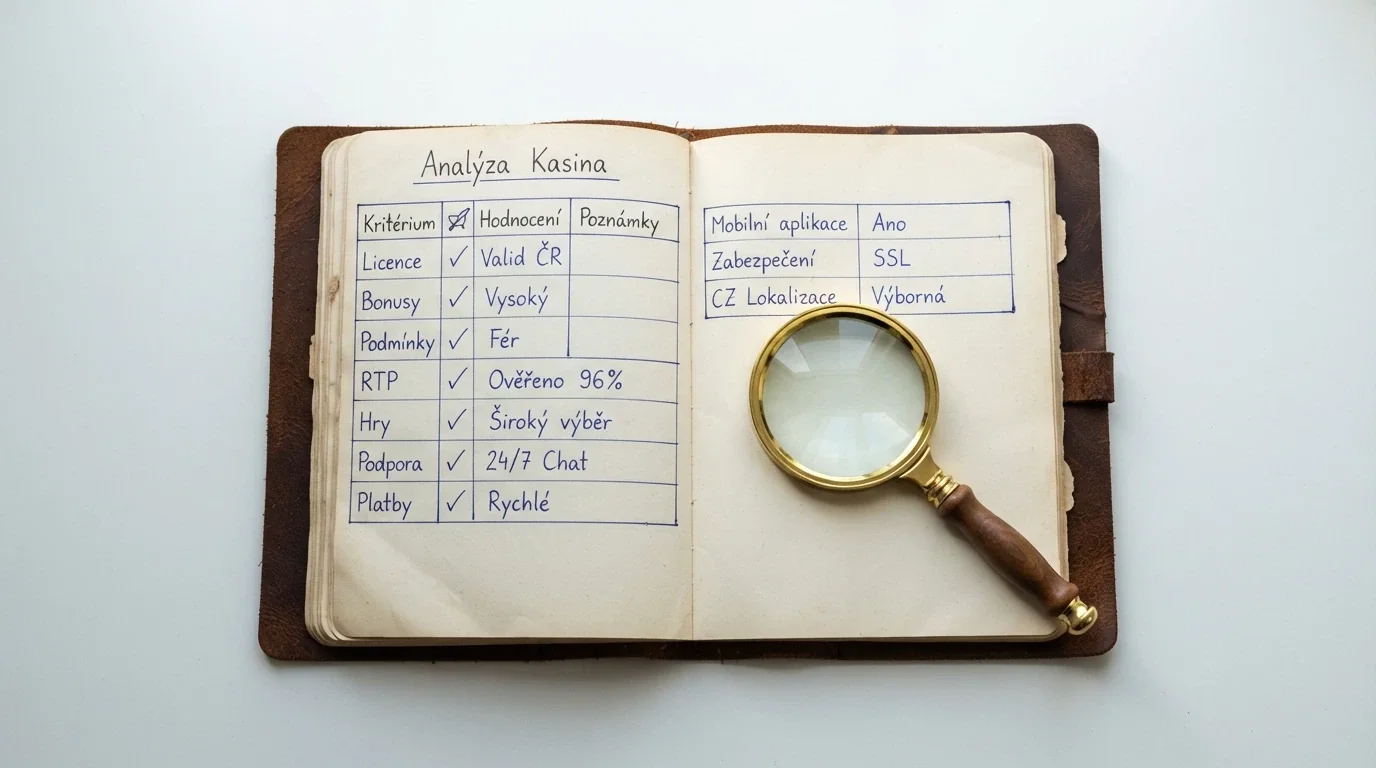 Analýza Kasina
Kritérium Hodnocení Poznámky
Licence ✓ Valid ČR
Bonusy ✓ Vysoký
Podmínky ✓ Fér
RTP ✓ Ověřeno 96%
Hry ✓ Široký výběr
Podpora ✓ 24/7 Chat
Platby ✓ Rychlé
Mobilní aplikace Ano
Zabezpečení SSL
CZ Lokalizace Výborná